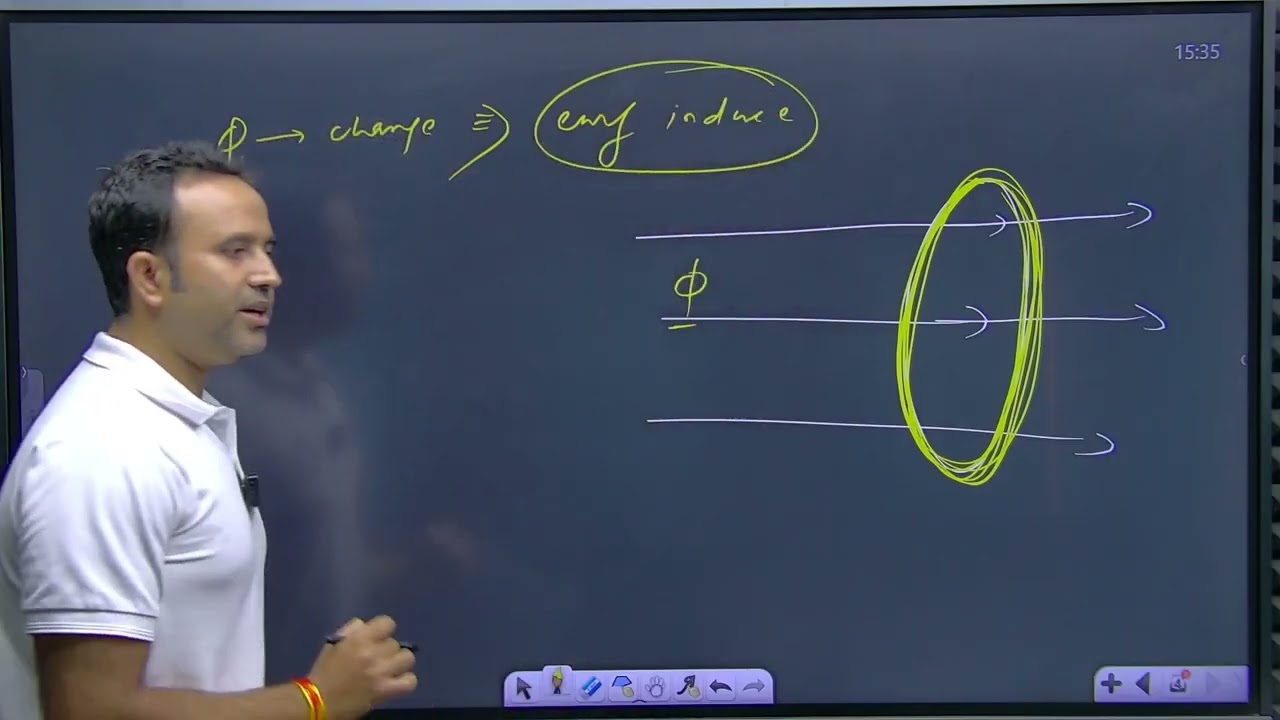 15:35
Φ → change ⇒ emf induce
Φ